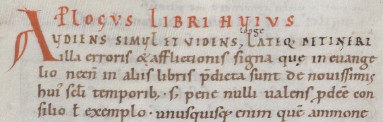 APLOGUS LIBRI HUIUS
AUDIENS SIMUL ET VIDENS, LATEQ DETINERI
illa erroris & afflictionis signa que in euange
lio necn in aliis libris pdicta sunt de nouissimis
hui scli temporib, s, pene nulli ualens pdee con
silio t exemplo. unusquisq enim que ammone